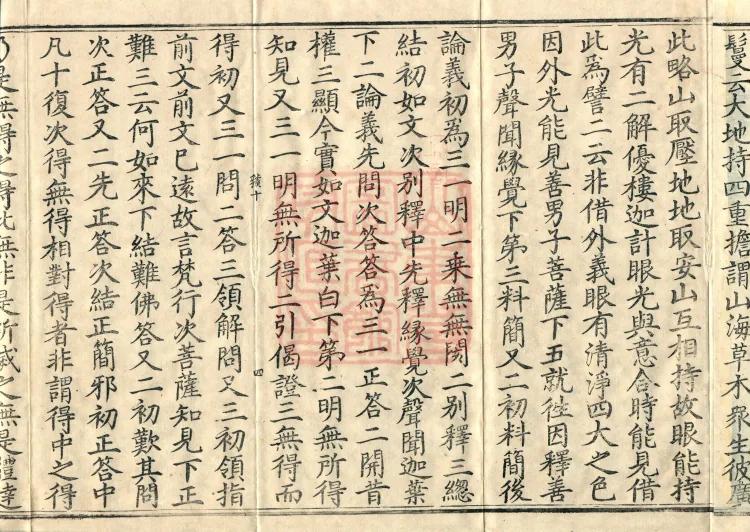 鬘云大地持四重擔謂山海草木衆生彼
此略山取壓地地取安山互相持故眼能持
光有二解優樓迦計眼光與意合時能見借
此為譬一云非借外義眼有清淨四大之色
因外光能見善男子菩薩下五就徃因釋善
男子聲聞縁覺下第三料簡又二初料簡後
論義初爲三一明二乗無無閡二別釋三緫
結初如文次別釋中先釋縁覺次聲聞迦葉
下二論義先問次答答爲三一正答二開昔
權三顯今實如文迦葉白下第二明無所得
知見又三一明無所得二引偈證三無得而
得初又三一問二答三領解問又三初領指
前文前文已遠故言梵行次菩薩知見下正
難三云何如來下結難佛答又二初歎其問
次正答又二先正答次結正簡邪初正答中
凡十復次得無得相對得者非謂得中之得
乃是無得之得此無非是所滅之無是體達